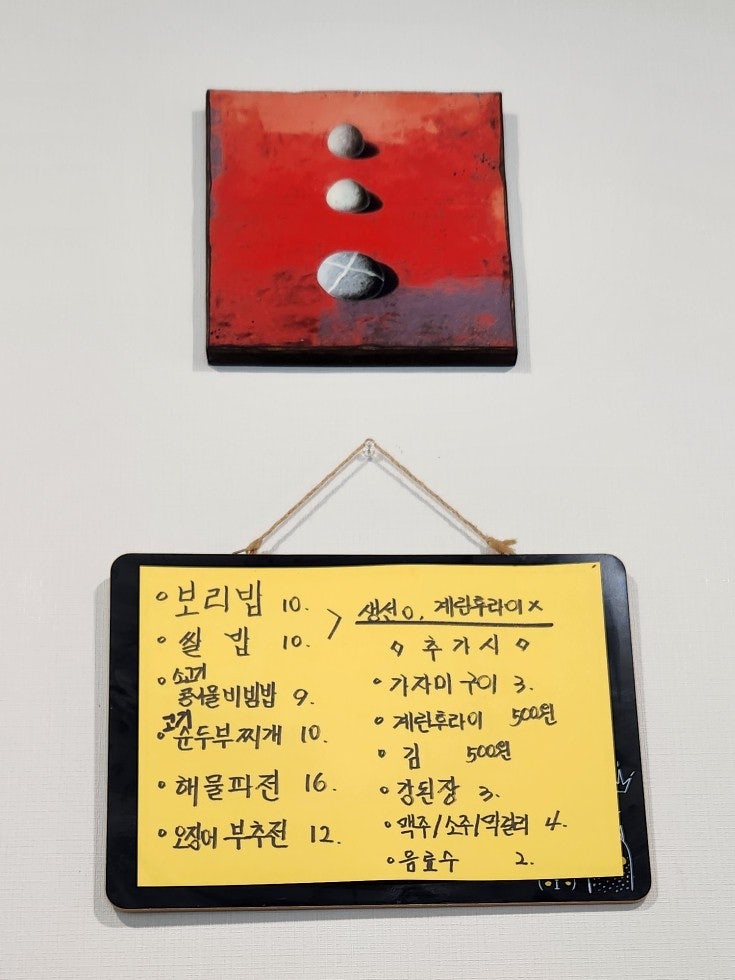 ° 보리밥 10.
° 쌀 밥 10.
° 소고기
콩나물비빔밥 9.
고기
° 순두부찌개 10.
° 해물파전 16.
° 오징어 부추전 12.
> 생선 o, 계란후라이 x
◇ 추 가 시 ◇
° 가자미 구이 3.
° 계란후라이 500원
° 김 500원
° 강된장 3.
° 맥주/소주/막걸리 4.
° 음료수 2.